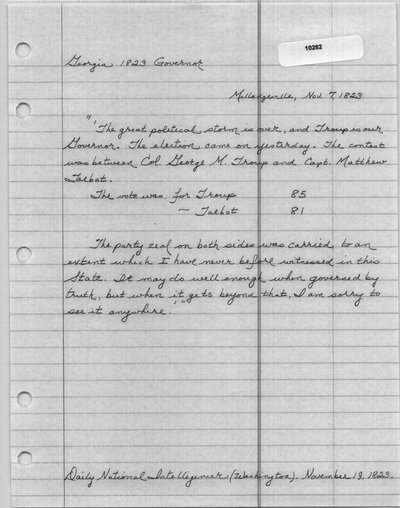 10282
Georgia 1823 Governor
Milledgeville, Nov. 7, 1823
"'The great political storm is over, and Troup is our
Governor. The election came on yesterday. The contest
was between Col. George M. Troup and Capt. Matthew
Talbot.
The vote was, for Troup 85
— Talbot 81
The party zeal on both sides was carried to an
extent which I have never before witnessed in this
State. It may do well enough when governed by
truth, but when it gets beyond that, I am sorry to
see it anywhere.'"
Daily National Intelligencer (Washington). November 19, 1823.